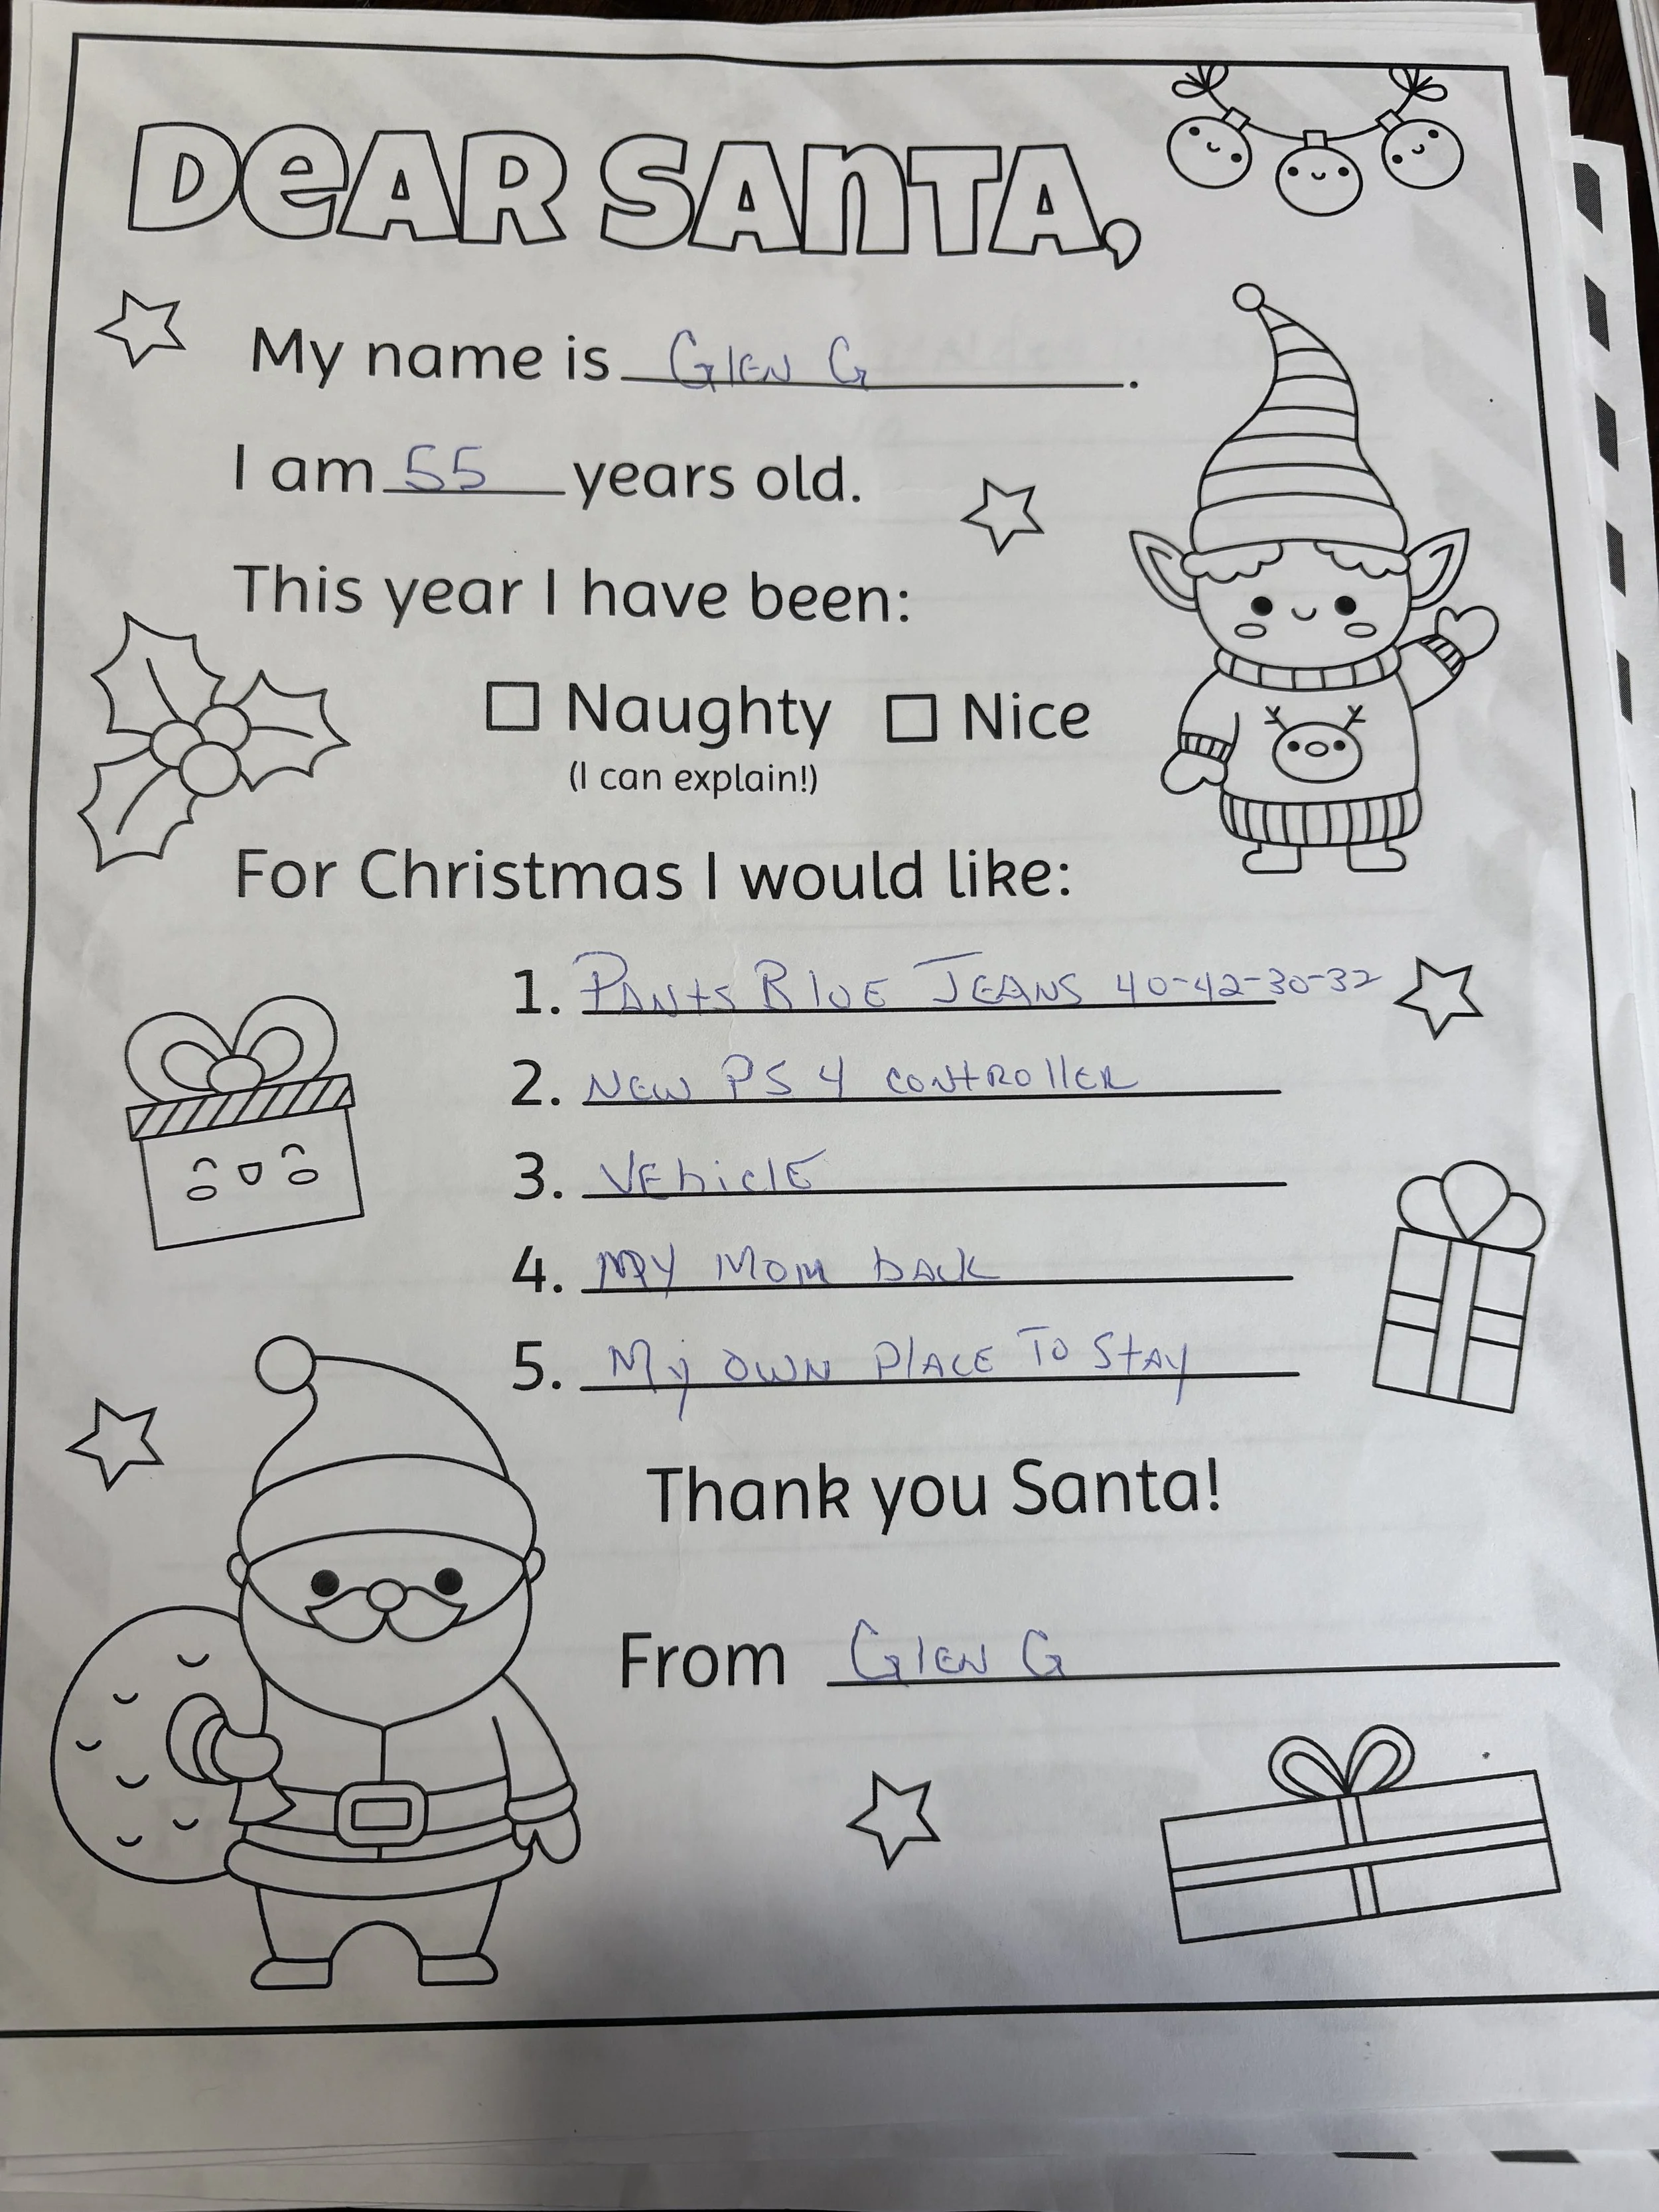 DEAR SANTA,
My name is Glen G.
I am 55 years old.
This year I have been:
☐ Naughty ☐ Nice
(I can explain!)
For Christmas I would like:
1. Pants Blue Jeans 40-42-30-32
2. New PS4 controller
3. Vehicle
4. My Mom back
5. My own Place To Stay
Thank you Santa!
From Glen G